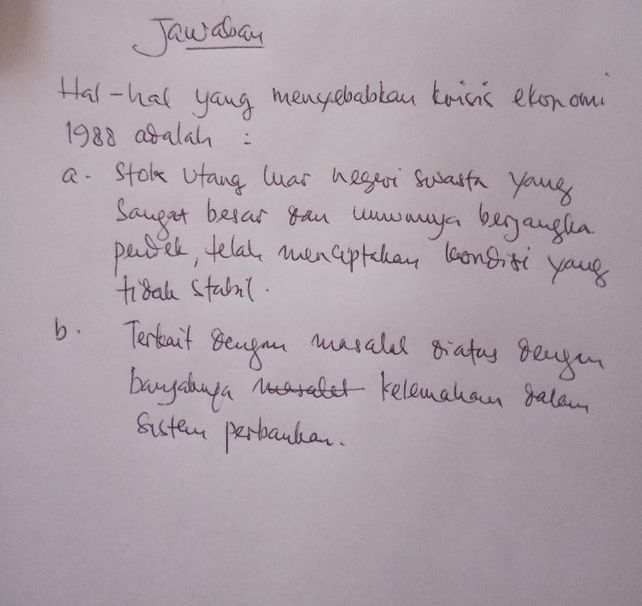 Jawaban
Hal-hal yang menyebabkan krisis ekonomi
1988 adalah :
a. Stok utang luar negeri swasta yang
Sangat besar dan umumnya berjangka
pendek, telah menciptakan kondisi yang
tidak stabil.
b. Terkait dengan masalah diatas dengan
banyaknya masalah kelemahan dalam
Sistem perbankan.